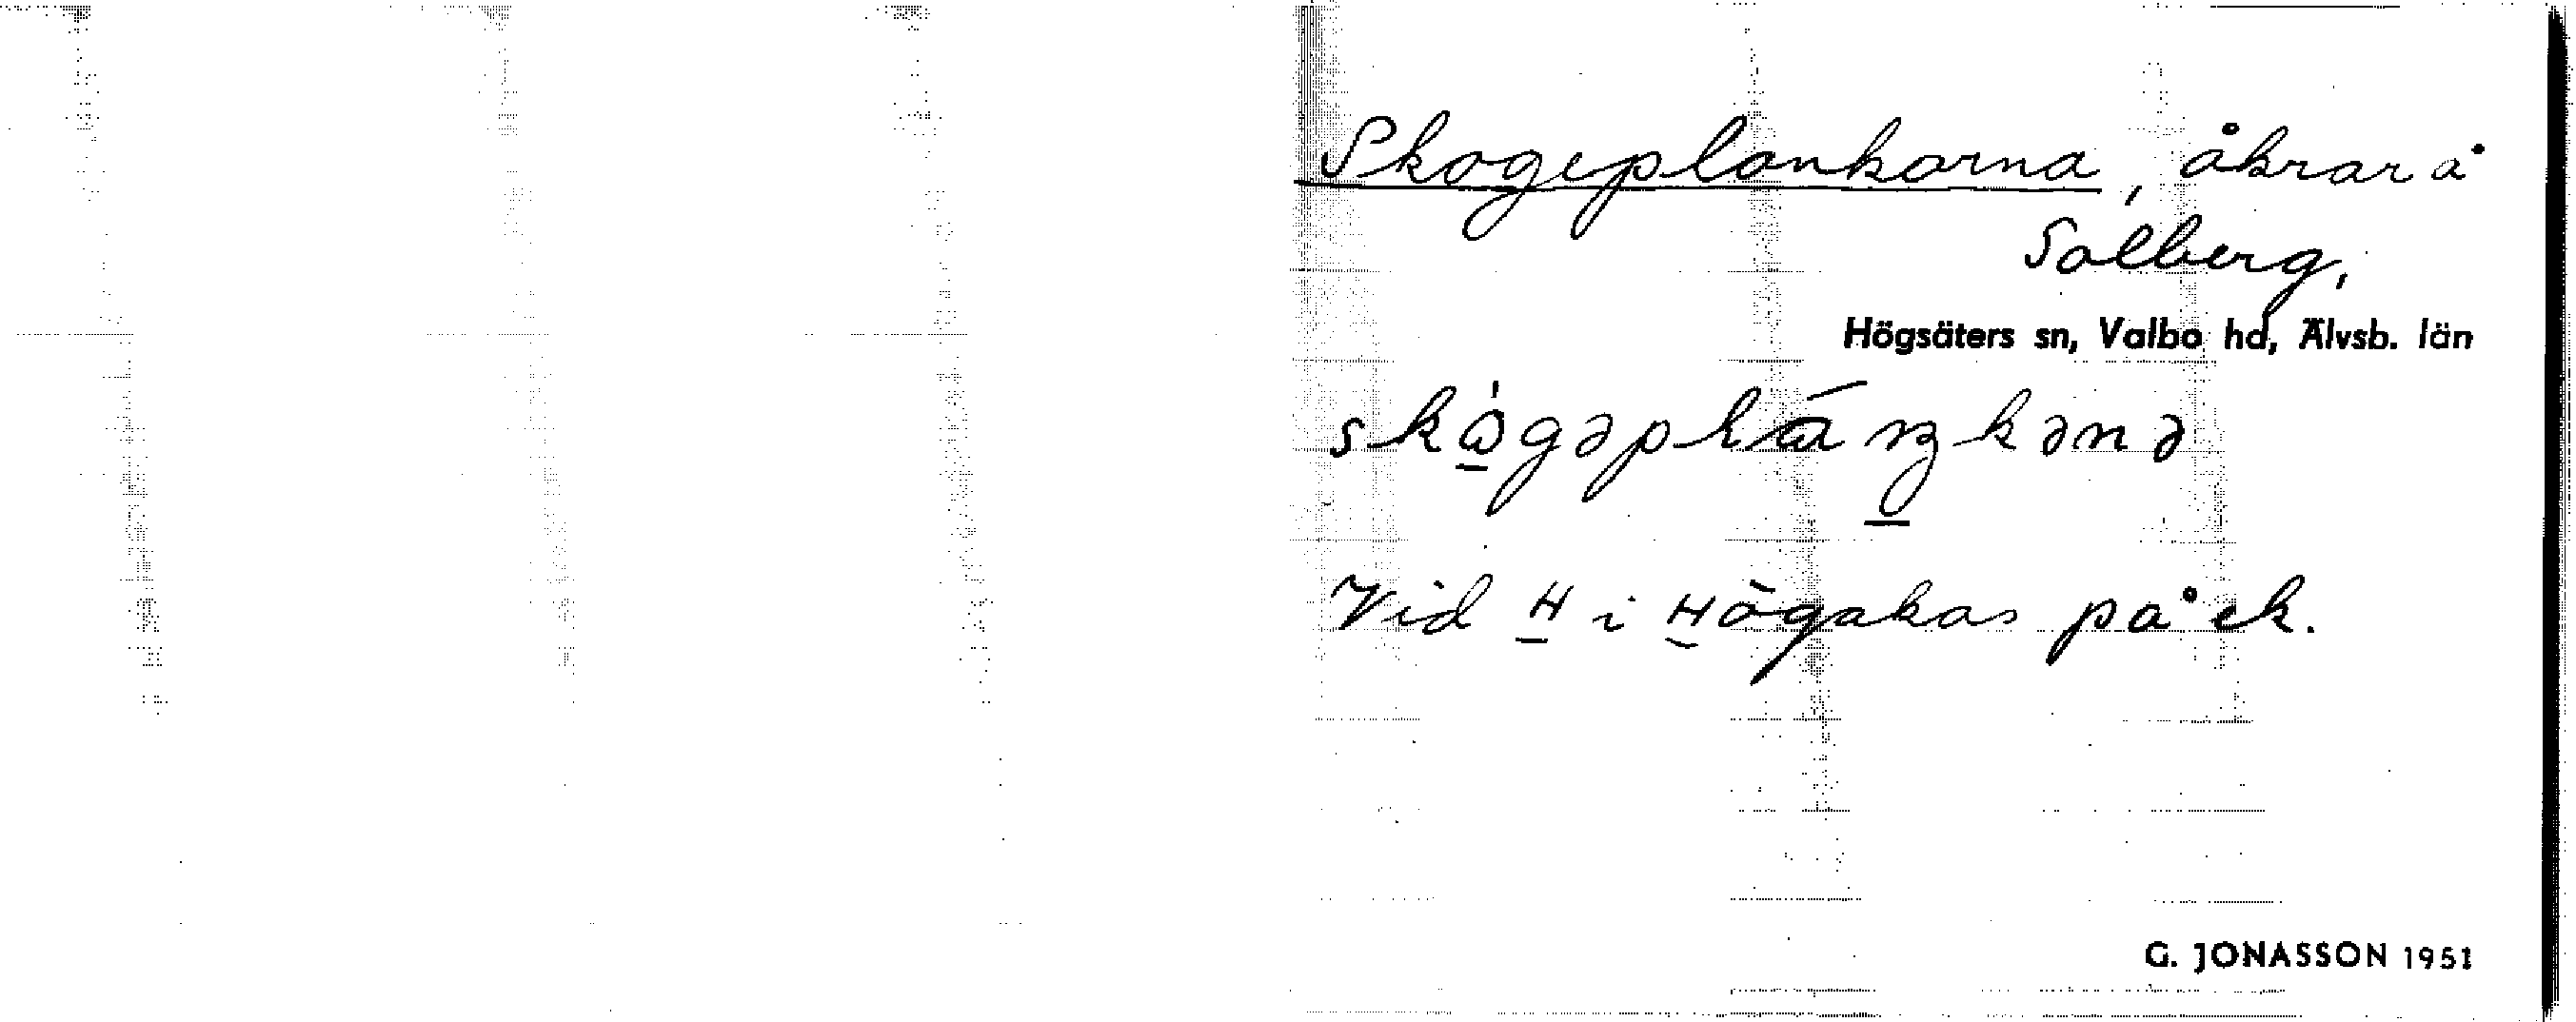 Skogeplankorna, åkrar å
Solberg,
Högsäters sn, Valbo hd, Älvsb. län
Vid H i Högakas på ek.
G. JONASSON 1951